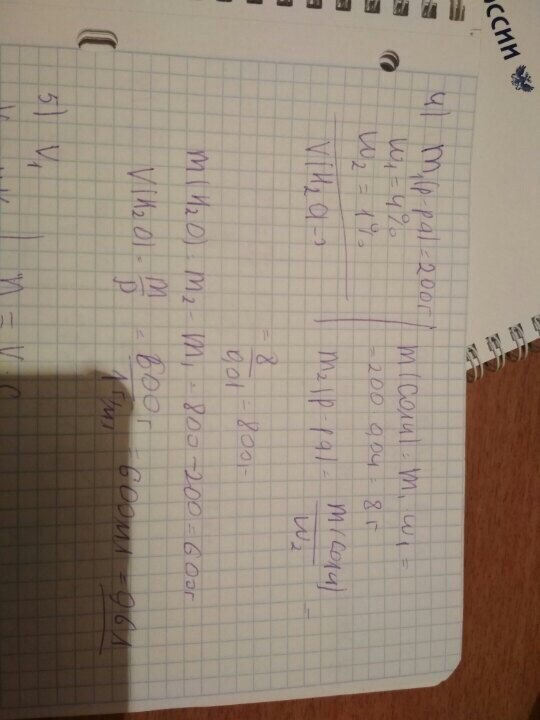 ССИИ
4) m₁(р-ра)=200г
w₁=4%
w₂=1%
V(H₂O)-?
m(соли)=m₁w₁=
=200·0,04=8г
m₂(р-ра)= m(соли)/w₂ =
= 8/0,01 =800г
m(H₂O)=m₂-m₁=800-200=600г
V(H₂O)= m/ρ = 600г/1г/мл =600мл=0,6л
5) V₁